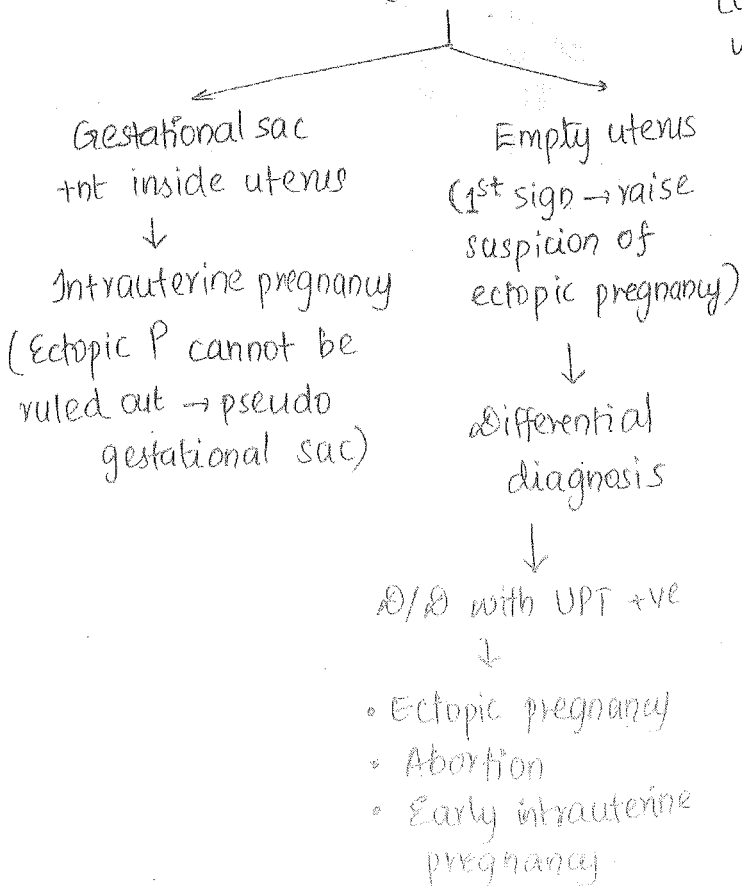 Gestational sac
+nt inside uterus
↓
Intrauterine pregnancy
(Ectopic P cannot be
ruled out → pseudo
gestational sac)
Empty uterus
(1st sign → raise
suspicion of
ectopic pregnancy)
↓
Differential
diagnosis
↓
D/D with UPT +ve
↓
• Ectopic pregnancy
• Abortion
• Early intrauterine
pregnancy.